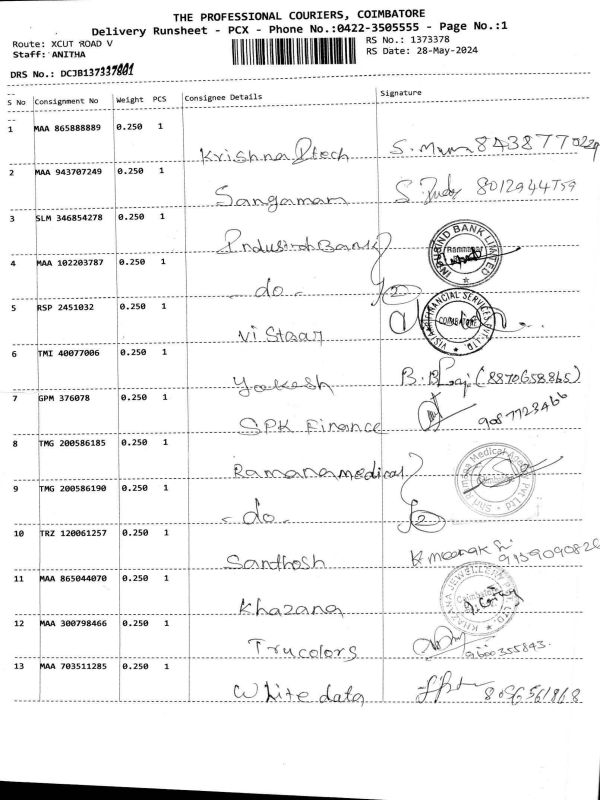 THE PROFESSIONAL COURIERS, COIMBATORE
Delivery Runsheet - PCX - Phone No.:0422-3505555 - Page No.:1
Route: XCUT ROAD V
RS No.: 1373378
Staff: ANITHA
RS Date: 28-May-2024
DRS No.: DCJB137337801
S No Consignment No Weight PCS Consignee Details Signature
1 MAA 865888889 0.250 1
Krishna
2 MAA 943707249 0.250 1
Sangamam 8012944759
3 SLM 346854278 0.250 1
Indusind Bank INDUSIND BANK LIMITED
4 MAA 102203787 0.250 1
- do - 2
5 RSP 2451032 0.250 1
Vi Staar COIMBATORE
6 TMI 40077006 0.250 1
Yokesh (8870658865)
7 GPM 376078 0.250 1
SPK Finance 9087723466
8 TMG 200586185 0.250 1
Ramana medical
9 TMG 200586190 0.250 1
- do - 2
10 TRZ 120061257 0.250 1
Santhosh
11 MAA 865044070 0.250 1
Khazana KHAZANA JEWELLERY PVT. LTD.
12 MAA 300798466 0.250 1
Trucolors 9600355843.
13 MAA 703511285 0.250 1
White data 8056561868